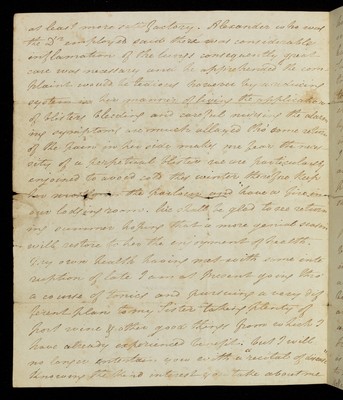 at least more satisfactory. Alexander who was
the Dr employed said there was considerable
inflamation of the lungs consequently great
care was necessary and he apprehended the com
plaint would be tedious however by a reducing
system in her manner of living the application
of blisters bleeding and careful nursing the alarm
ing symptoms are much allayed tho some return
of the pain in her side makes me fear the neces
sity of a perpetual blister we are particularly
enjoined to avoid colds this winter therefore keep
her the parlour and have a fire in
our lodging room. We shall be glad to see return
ing summer hoping that a more genial season
will restore to her the enjoyment of health.
My own health having met with some inte
ruption of late I am at present going thro
a course of tonics and pursuing a very dif
ferent plan to my Sister taking plenty of
port wine & other good things from which I
have already experienced benefit. But I will
no longer entertain you with a "recital of
knowing the kind interest you take about me